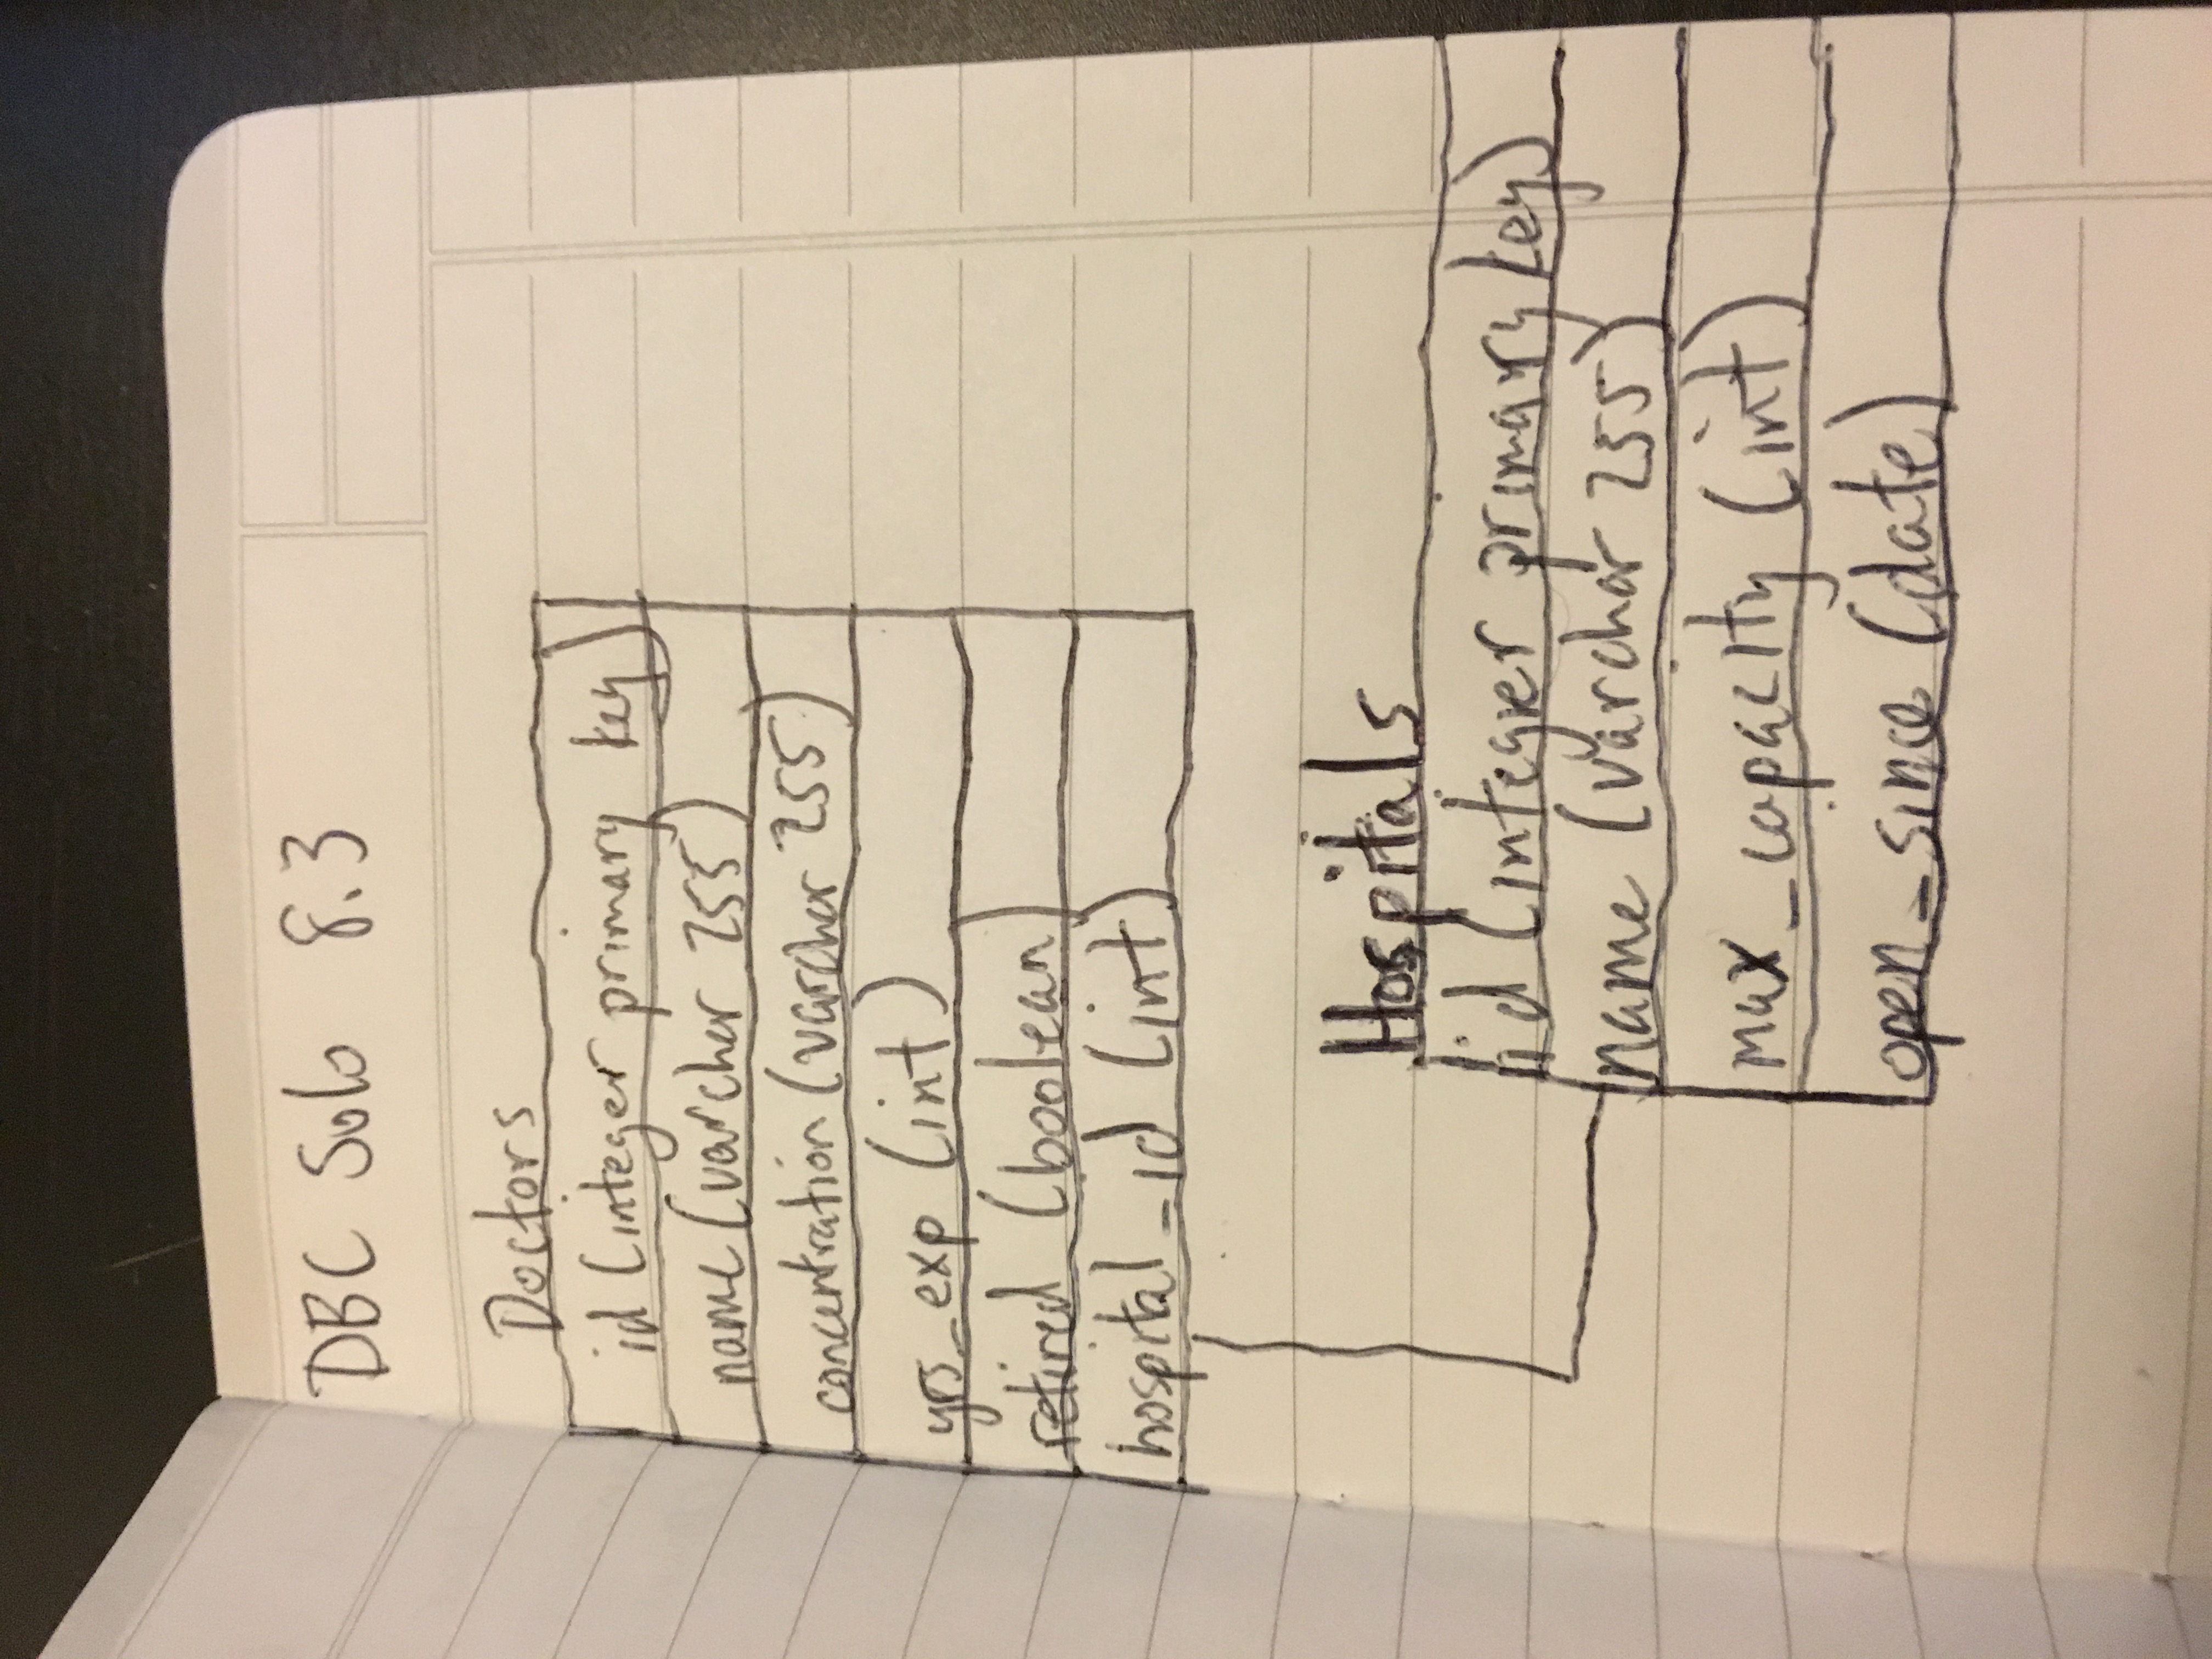 DBC Solo 8.3
Doctors
id (integer primary key)
name (varchar 255)
concentration (varchar 255)
yrs_exp (int)
retired (boolean)
hospital_id (int)
Hospitals
id (integer primary key)
name (varchar 255)
max_capacity (int)
open_since (date)